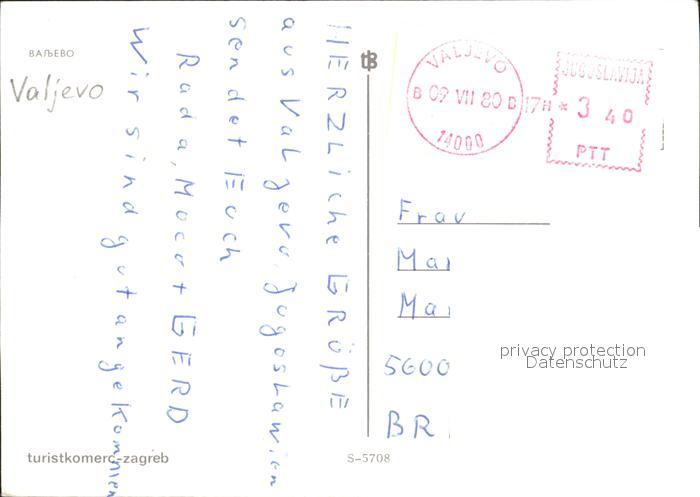 ВАЉЕВО
Valjevo
HERZLiche GRÜßE
aus Valjevo, Jugoslawien
sendet Euch
Rada, Moca + GERD
Wir sind gut angekommen
VALJEVO
09 VII 80
17H
14000
JUGOSLAVIJA
* 3 40
PTT
Frau
Ma
Ma
5600
BR
privacy protection
Datenschutz
turistkomerc-zagreb
S-5708